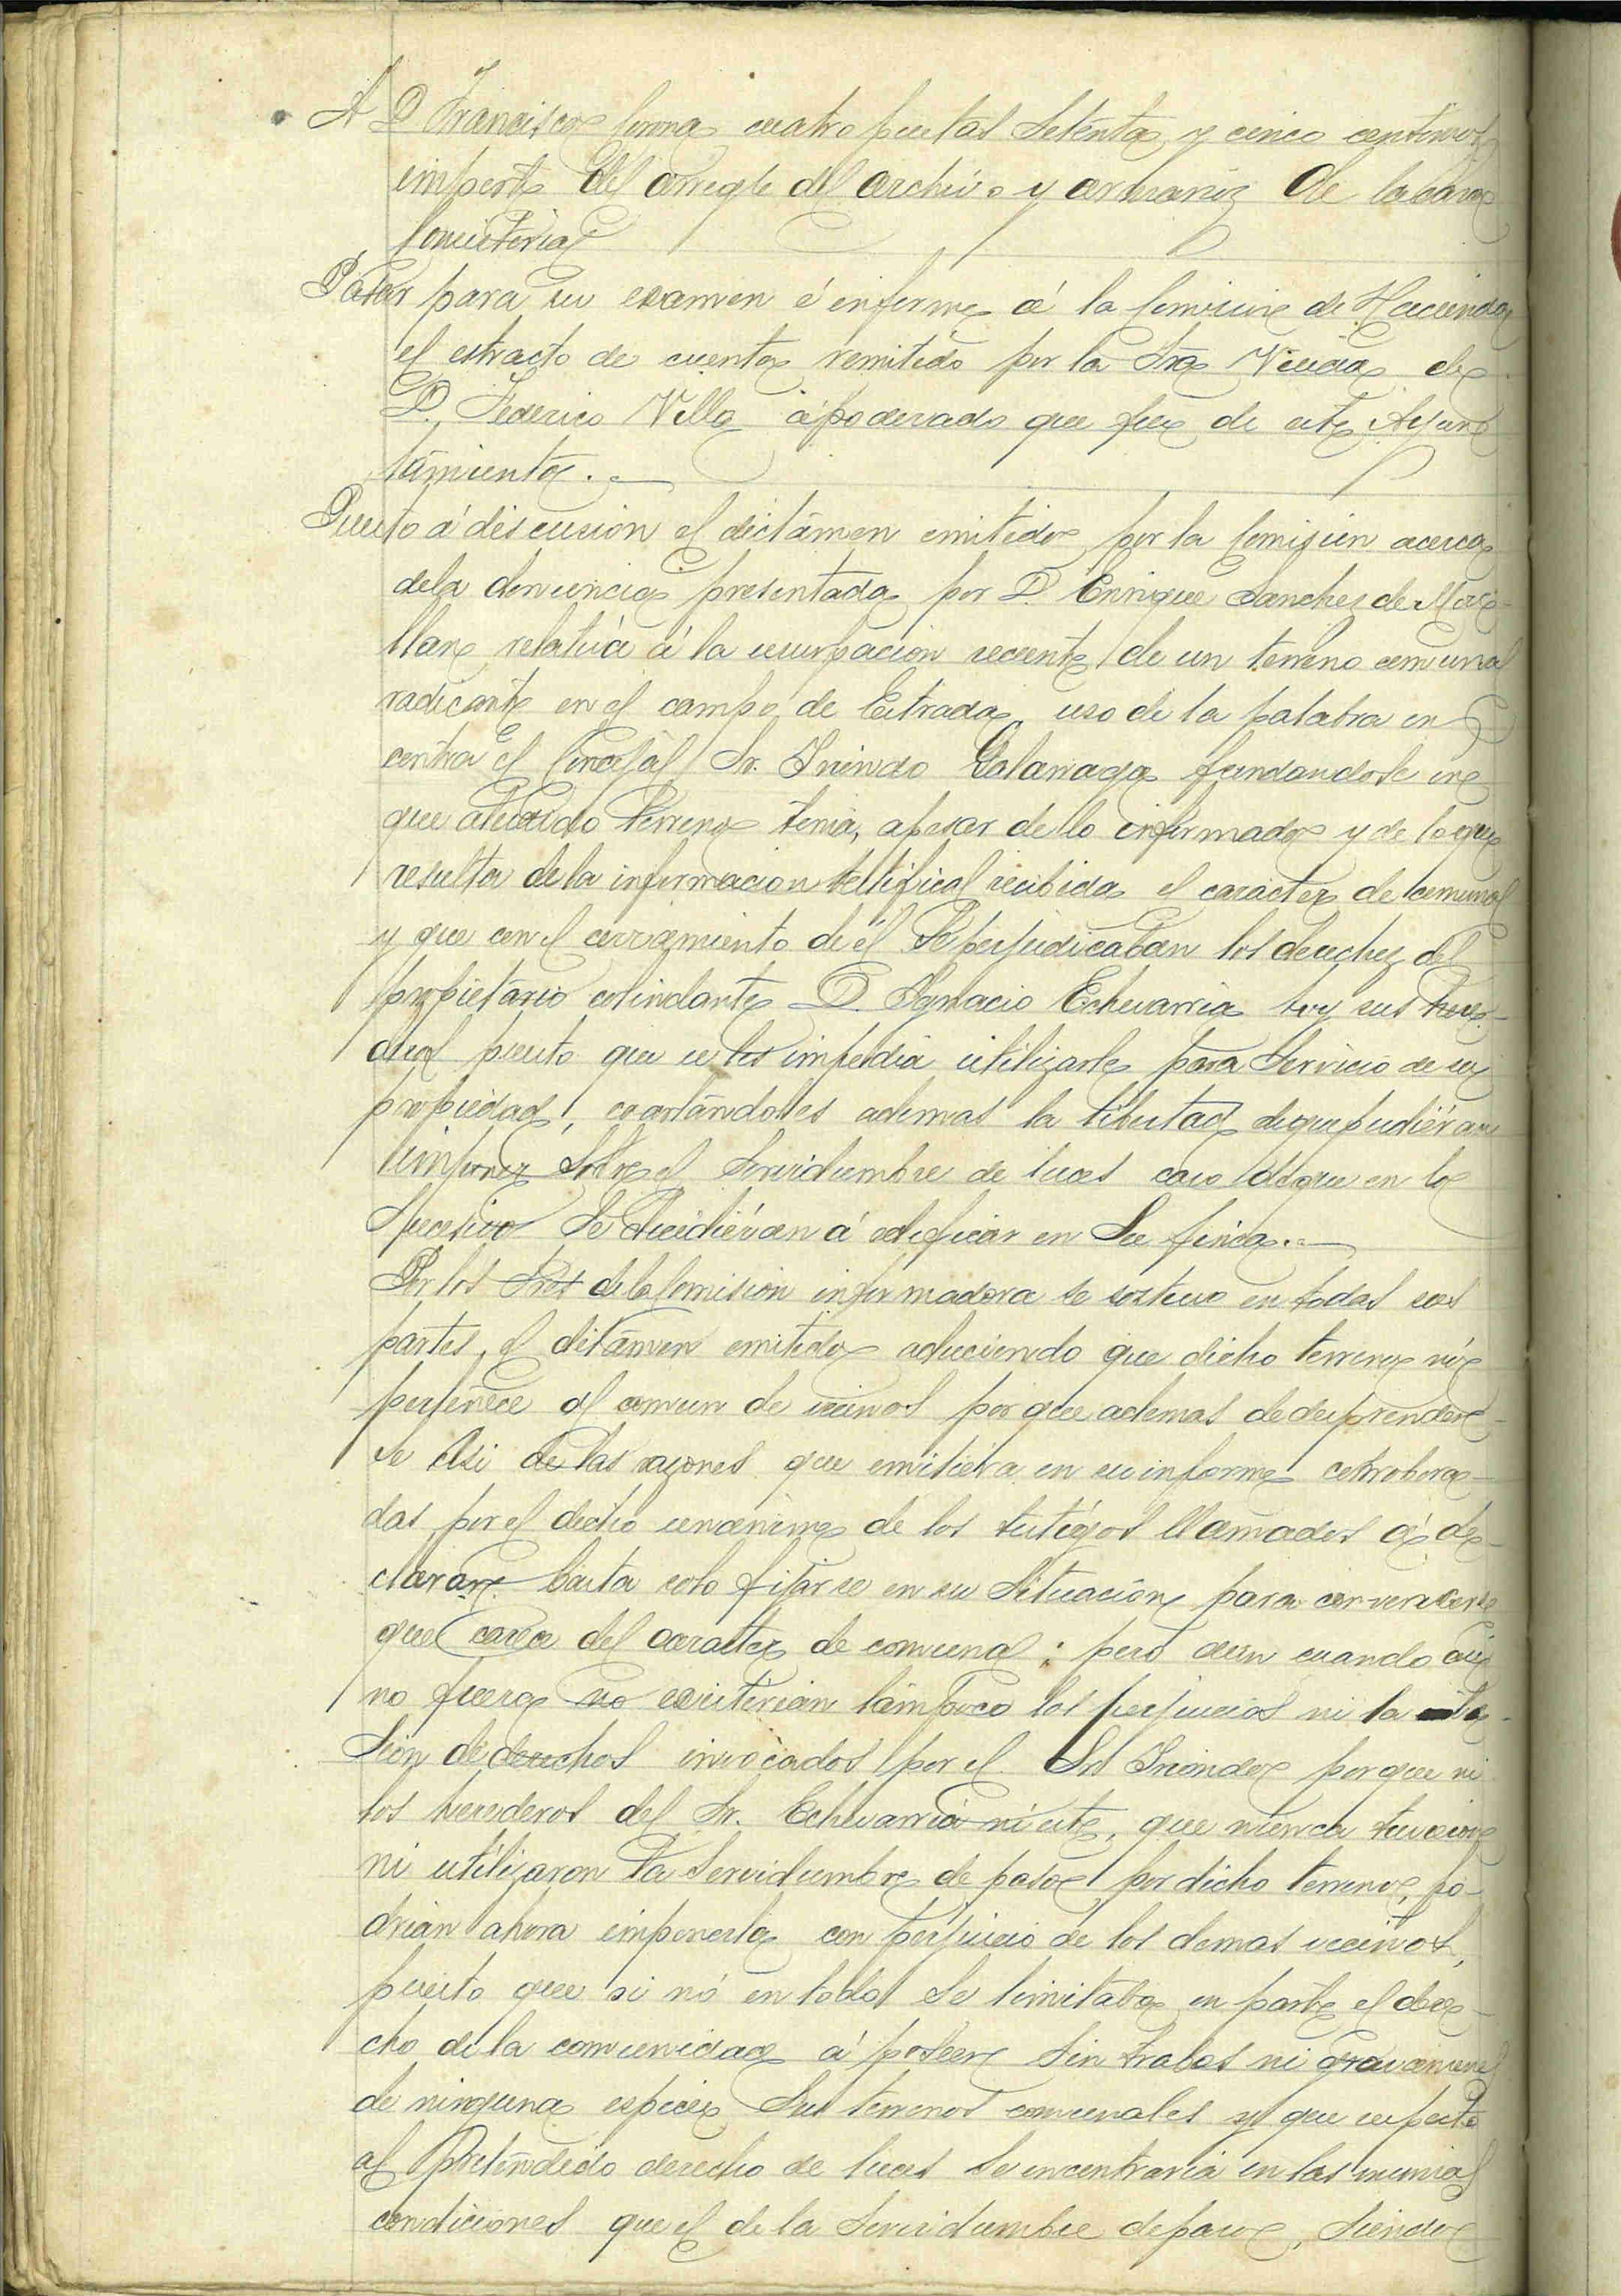 A D Francisco Corona cuatro pesetas setenta y cinco centimos
importe del arreglo del archivo y armariz de la casa
Consistorial
Pasar para su examen é informe á la Comision de Hacienda
el estracto de cuenta remitido por la Sra Viuda de
D. Federico Villa apoderado que fue de este Ayun
tamiento.
Puesto á discusion el dictámen emitido por la Comision acerca
dela denuncia presentada por D. Enrique Sanchez de
llan relativa á la usurpacion reciente de un terreno comunal
radicante en el campo de Estrada, uso de la palabra en
contra el Concejal Sr. Galarraga fundandose en
que aludido terreno tenia, apesar de lo informado y de lo que
resulta dela informacion testifical recibida el carácter de comunal
y que con el cerramiento de él se perjudicaban los derechos del
propietario colindante D. Ignacio Echevarria hoy sus here-
deros puesto que se les impedia utilizarle para servicio de su
propiedad, coartándoles ademas la libertad de que pudiéran
imponer sobre el servidumbre de luces caso de que en lo
sucesivo se decidiéran á edificar en su finca.
Por los Sres de la Comision informadora se sostuvo en todas sus
partes el ditámen emitido aduciendo que dicho terreno no
pertenece al comun de vecinos por que ademas de desprender-
se asi de las razones que emitiera en su informe corrobora-
das por el dicho unanime de los testigos llamados á de-
clarar basta solo fijarse en su situacion para convencerse
que carece del caracter de comunal; pero aun cuando asi
no fuera no existerian tampoco los perjuicios ni la le-
sion de derechos invocados por el Sr porque ni
los herederos del Sr. Echevarria ni este, que nunca tuvieron
ni utilizaron la servidumbre de paso por dicho terreno, po-
drian ahora imponerla con perjuicio de los demas vecinos,
puesto que si nó en todo se limitaba en parte el dere-
cho de la comunidad á poseer sin trabas ni gravamenes
de ninguna especie sus terrenos comunales y que respecto
al pretendido derecho de luces se encontraria en las mismas
condiciones que el de la servidumbre de paso, siendo